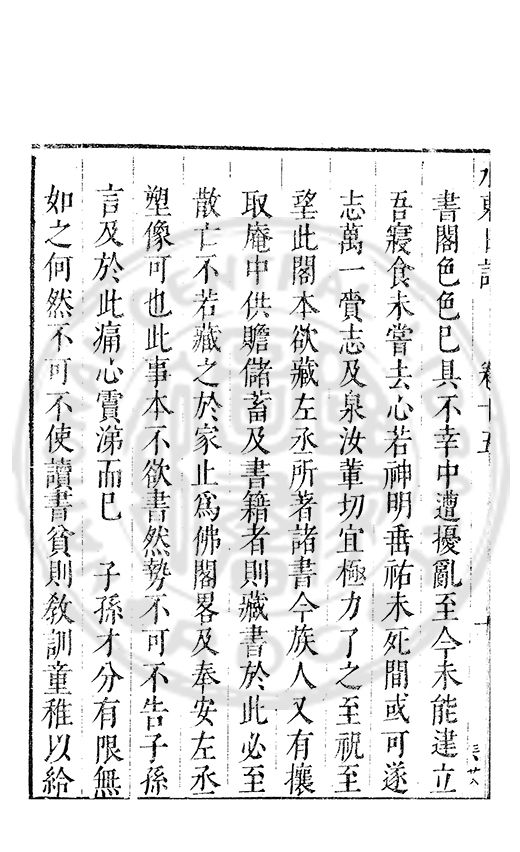 水東日記　卷十五　十
書閣色色已具不幸中遭擾亂至今未能建立
吾寢食未嘗去心若神明垂祐未死間或可遂
志萬一賫志及泉汝軰切宜極力了之至祝至
望此閣本欲藏左丞所著諸書今族人又有攘
取庵中供贍儲蓄及書籍者則藏書於此必至
散亡不若藏之於家止爲佛閣畧及奉安左丞
塑像可也此事本不欲書然勢不可不告子孫
言及於此痛心霣涕而已　子孫才分有限無
如之何然不可不使讀書貧則敎訓童稚以給